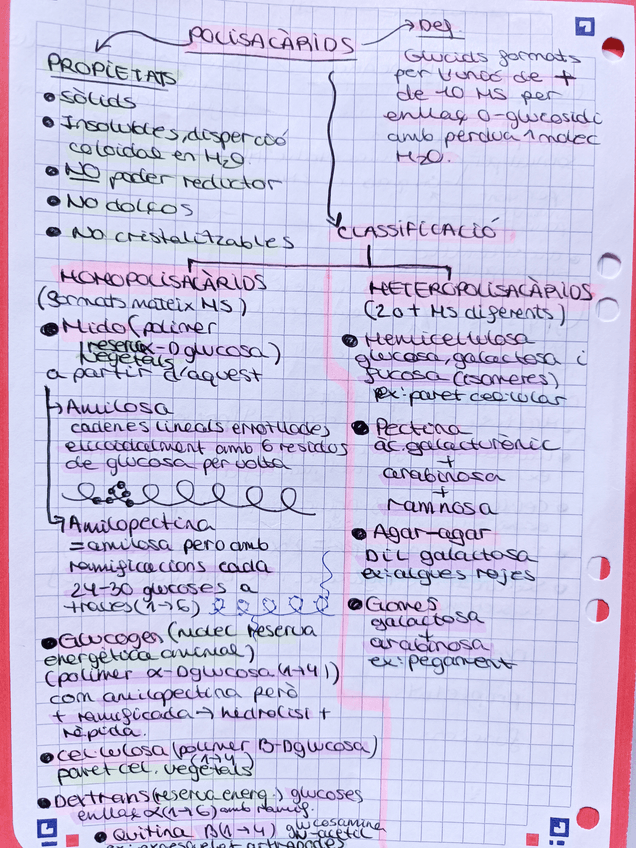 POLISACÀRIDS
Def
Glúcids formats
per unió de +
de 10 MS per
enllaç O-glucosidi
amb pèrdua 1 molec
H2O.
PROPIETATS
• Sòlids
• Insolubles, disperció
coloidal en H2O.
• NO poder reductor
• No dolços
• No cristalitzables
CLASSIFICACIÓ
HOMOPOLISACÀRIDS
(formats mateix MS)
• Mido (polímer
reserva α-D glucosa)
vegetals
a partir d'aquest
→ Amilosa
cadenes lineals enrotllades
elicoidalment amb 6 residos
de glucosa per volta
→ Amilopectina
= amilosa pero amb
ramificacions cada
24-30 glucoses a
traves (1→6)
• Glucogen (nuclec reserva
energètica animal)
(polimer α-Dglucosa (1→4))
com amilopectina però
+ ramificada → hidrolisi +
ràpida.
• cel·lulosa (polímer B-Dglucosa)
(1→4)
paret cel. vegetals
• Dextrans (reserva energ.) glucoses
enllaç α(1→6) amb ramif.
• Quitina B(1→4) glucosamina
N-acetil
HETEROPOLISACÀRIDS
(2 o + MS diferents)
• Hemicellulosa
glucosa, galactosa i
fucosa (isomeres)
ex: paret cel·lular
• Pectina
àc. galacturònic
+
arabinosa
+
ramnosa
• Agar-agar
D i L galactosa
ex: algues rojes
• Gomes
galactosa
+
arabinosa
ex: pegament